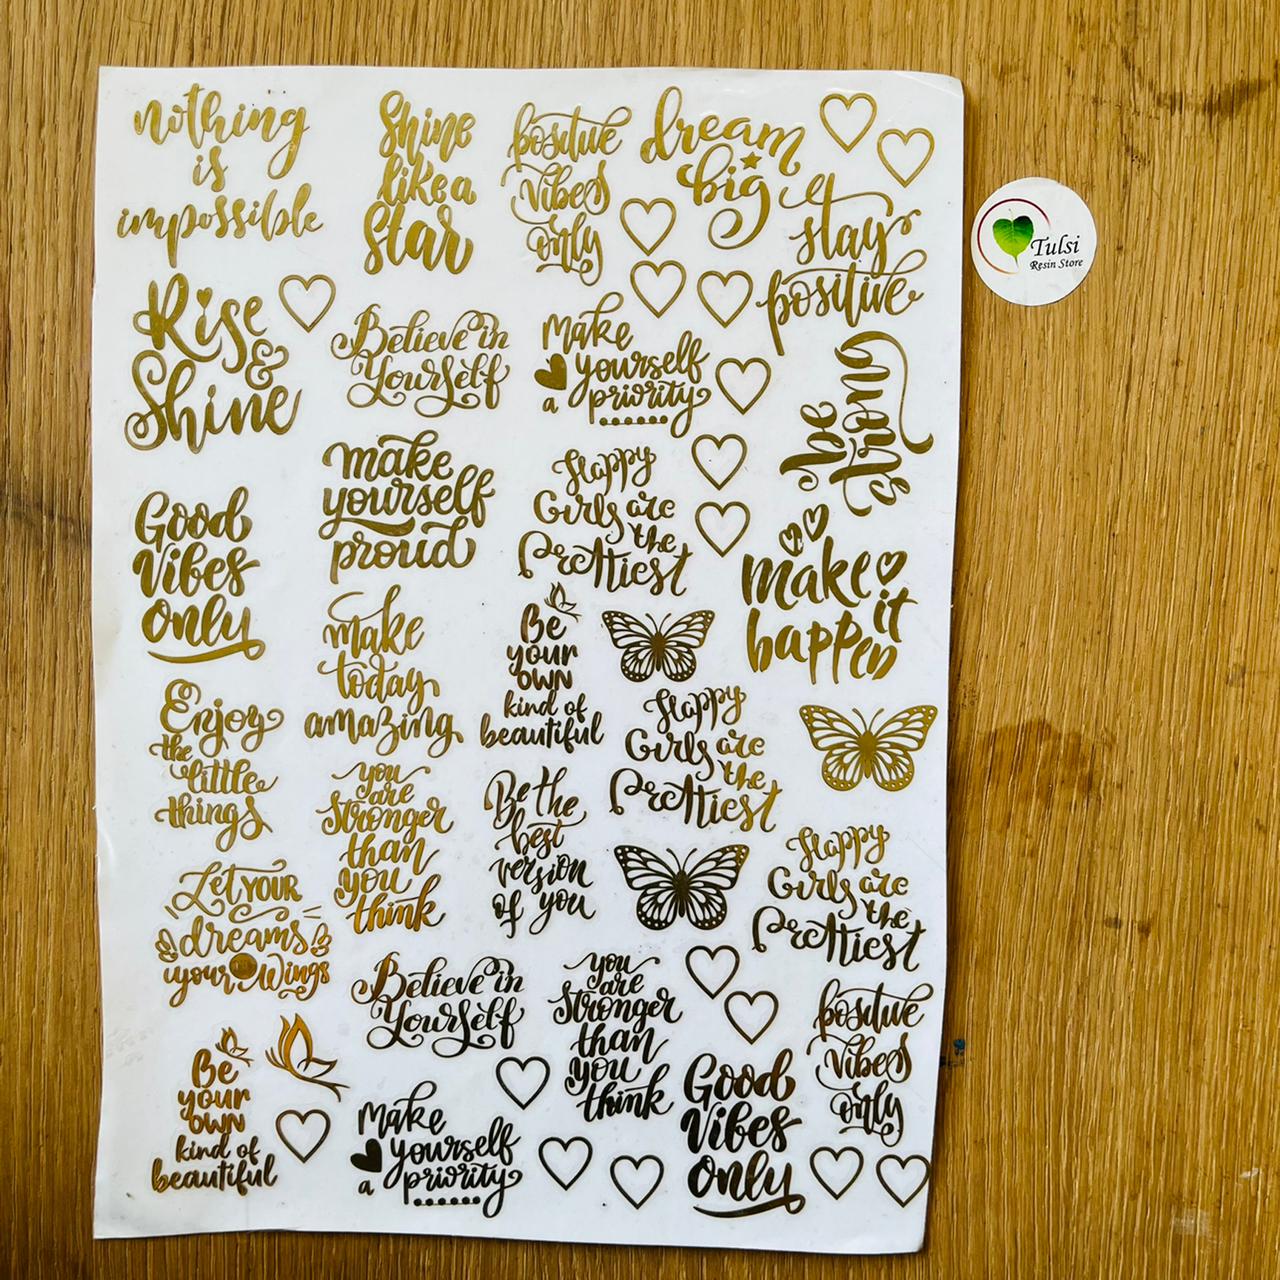 nothing
is
impossible
Shine
like a
Star
positive
vibes
only
dream
big
stay
positive
Rise
&
Shine
Believe in
Yourself
Make
yourself
a priority
be
strong
make
yourself
proud
Happy
Girls are
the
Prettiest
Good
Vibes
only
make it
happen
make
today
amazing
Be
your
own
kind of
beautiful
Enjoy
the little
things
Happy
Girls are
the
Prettiest
you
are
Stronger
than
you
think
Be the
best
version
of you
Happy
Girls are
the
Prettiest
Let YOUR
dreams
be
your Wings
Believe in
Yourself
you
are
Stronger
than
you
think
positive
vibes
only
Be
your
own
kind of
beautiful
Make
yourself
a priority
Good
Vibes
only
Tulsi
Resin Store